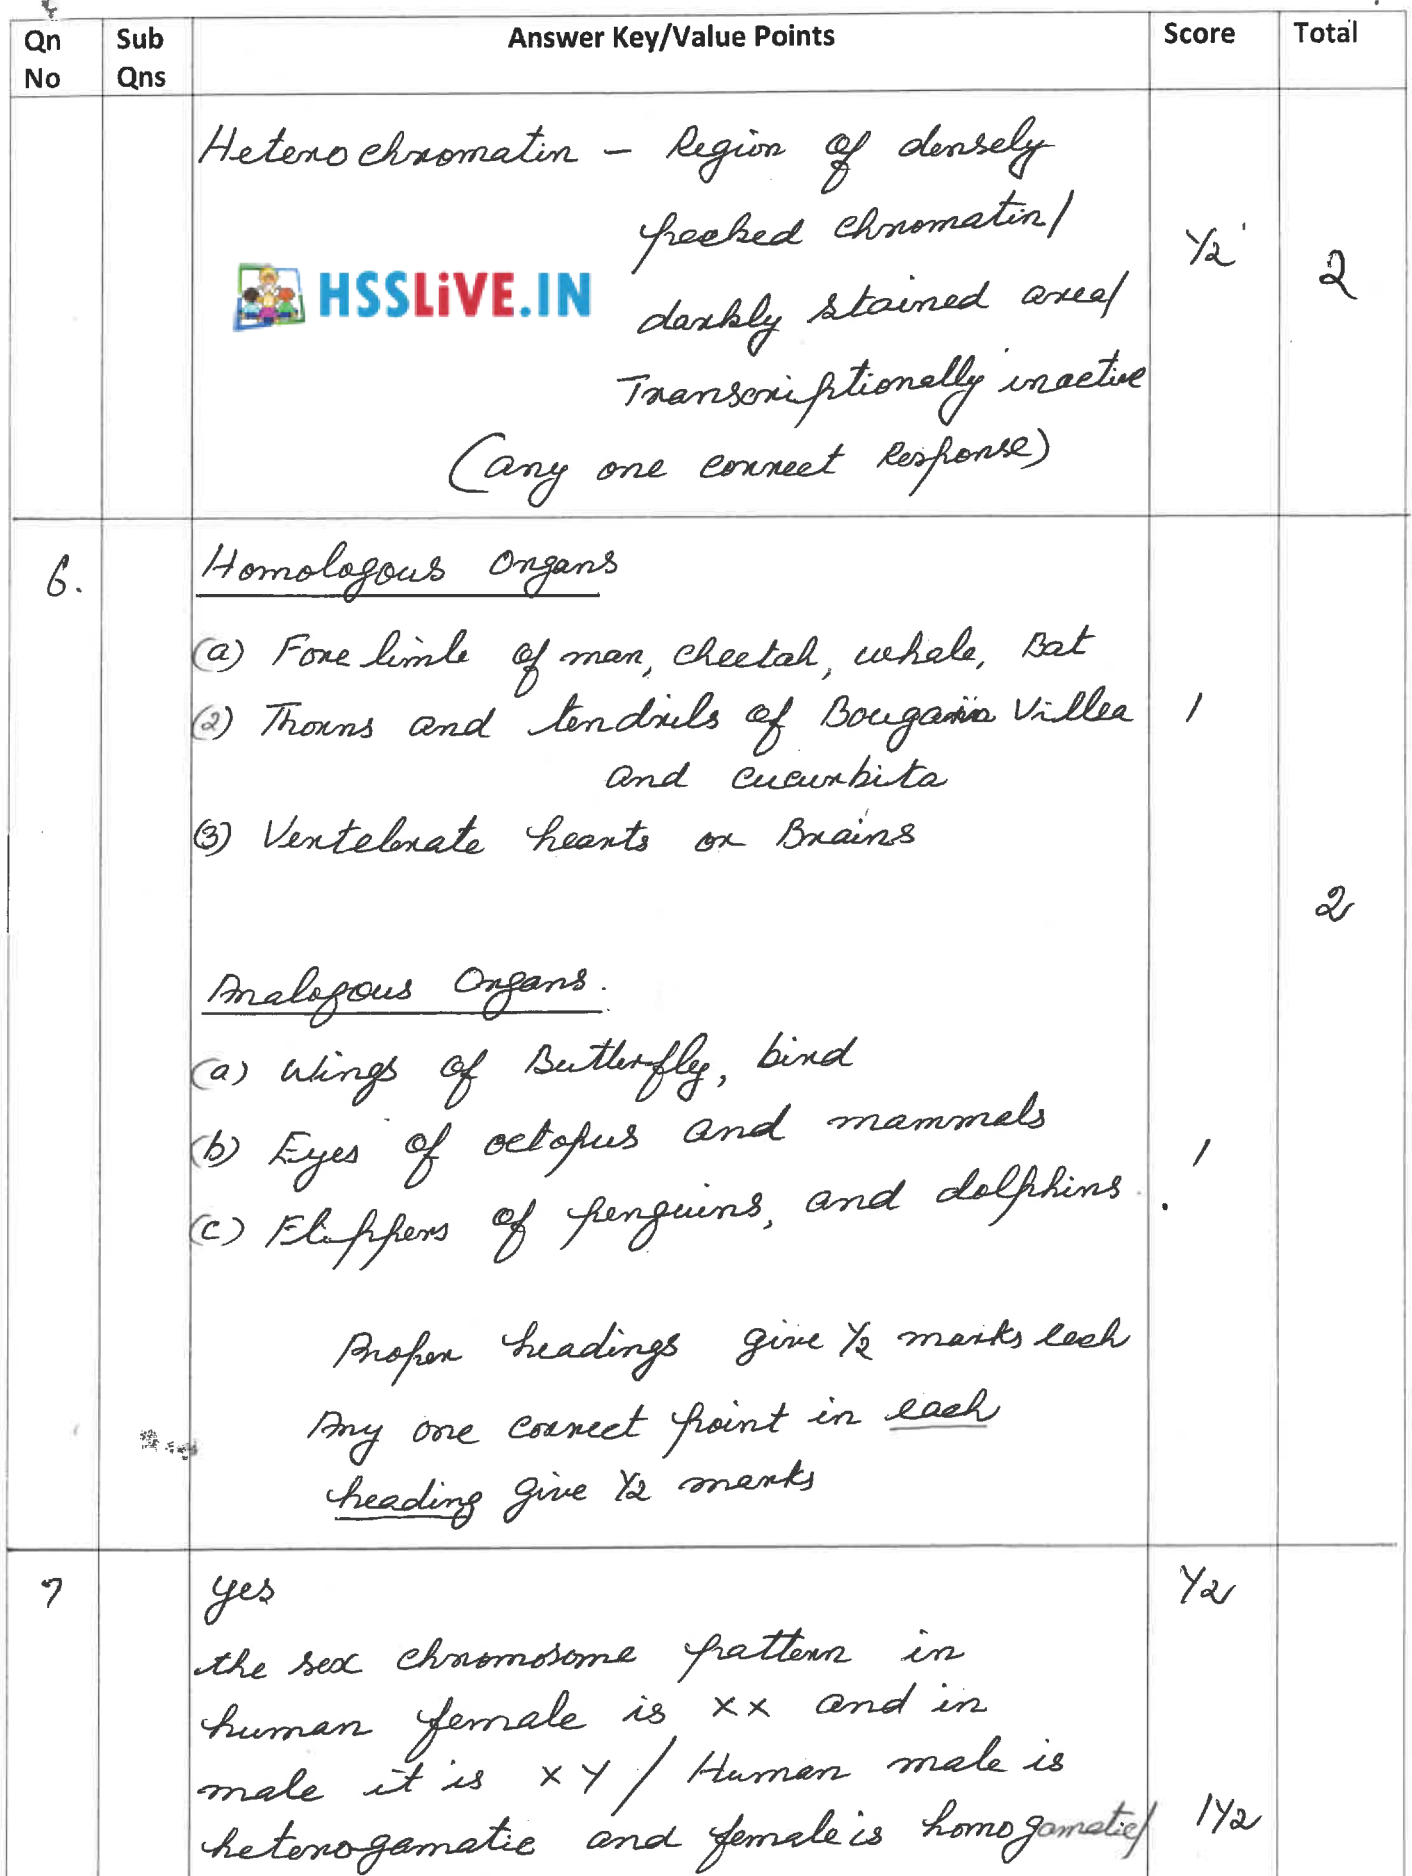 Qn No Sub Qns Answer Key/Value Points Score Total
Heterochromatin – Region of densely
packed chromatin/
½ 2
HSSLiVE.IN
darkly stained area/
Transcriptionally inactive
(any one correct Response)
6. Homologous Organs
(a) Fore limb of man, cheetah, whale, Bat
(2) Thorns and tendrils of Bougainvillea 1
and cucurbita
(3) Vertebrate hearts or Brains
2
Analogous Organs.
(a) Wings of Butterfly, bird
(b) Eyes of octopus and mammals 1
(c) Flippers of penguins, and dolphins.
Proper headings give ½ marks each
Any one correct point in each
heading give ½ marks
7 yes ½
the sex chromosome pattern in
human female is XX and in
male it is XY / Human male is
heterogamatic and female is homogamatic/ 1½